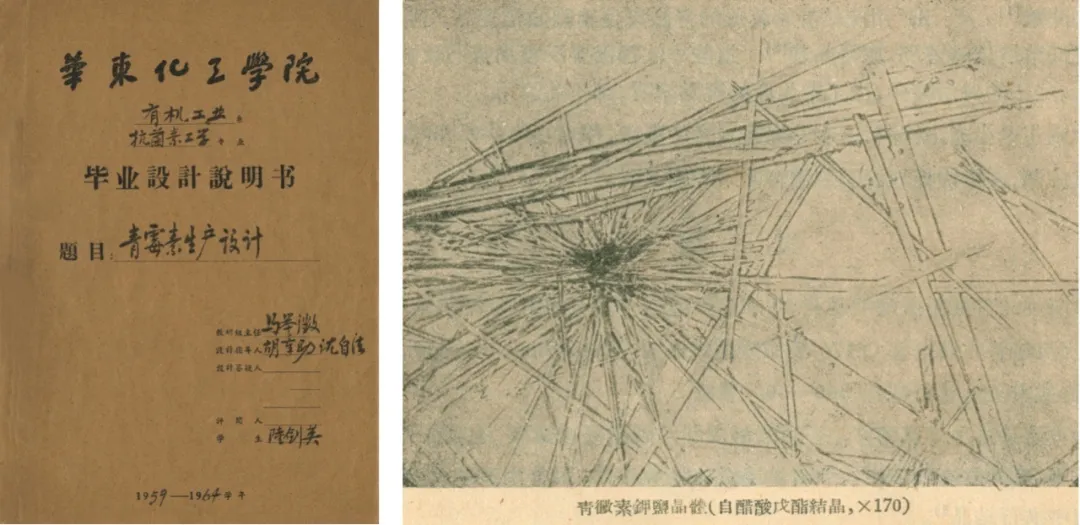 華東化工学院
有机工业系
抗菌素工学专业
毕业設計說明书
題目:青霉素生产设计
教研組主任
設計指导人 胡章助 沈自法
設計答疑人
評閱人
学生 陸剑英
1959—1964学年
青黴素鉀鹽晶體(自醋酸戊酯結晶,×170)